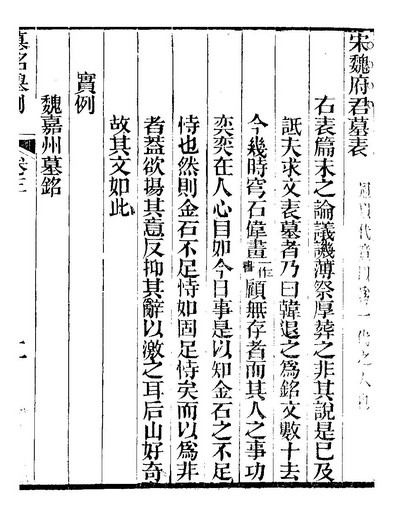 宋魏府君墓表
右表篇末之論議譏薄祭厚葬之非其說是已及
詆夫求文表墓者乃曰韓退之爲銘文數十去
今幾時穹石偉畫一作書顧無存者而其人之事功
奕奕在人心目如今日事是以知金石之不足
恃也然則金石不足恃如固足恃矣而以爲非
者蓋欲揚其意反抑其辭以激之耳后山好奇
故其文如此
實例
魏嘉州墓銘
墓銘舉例 卷三